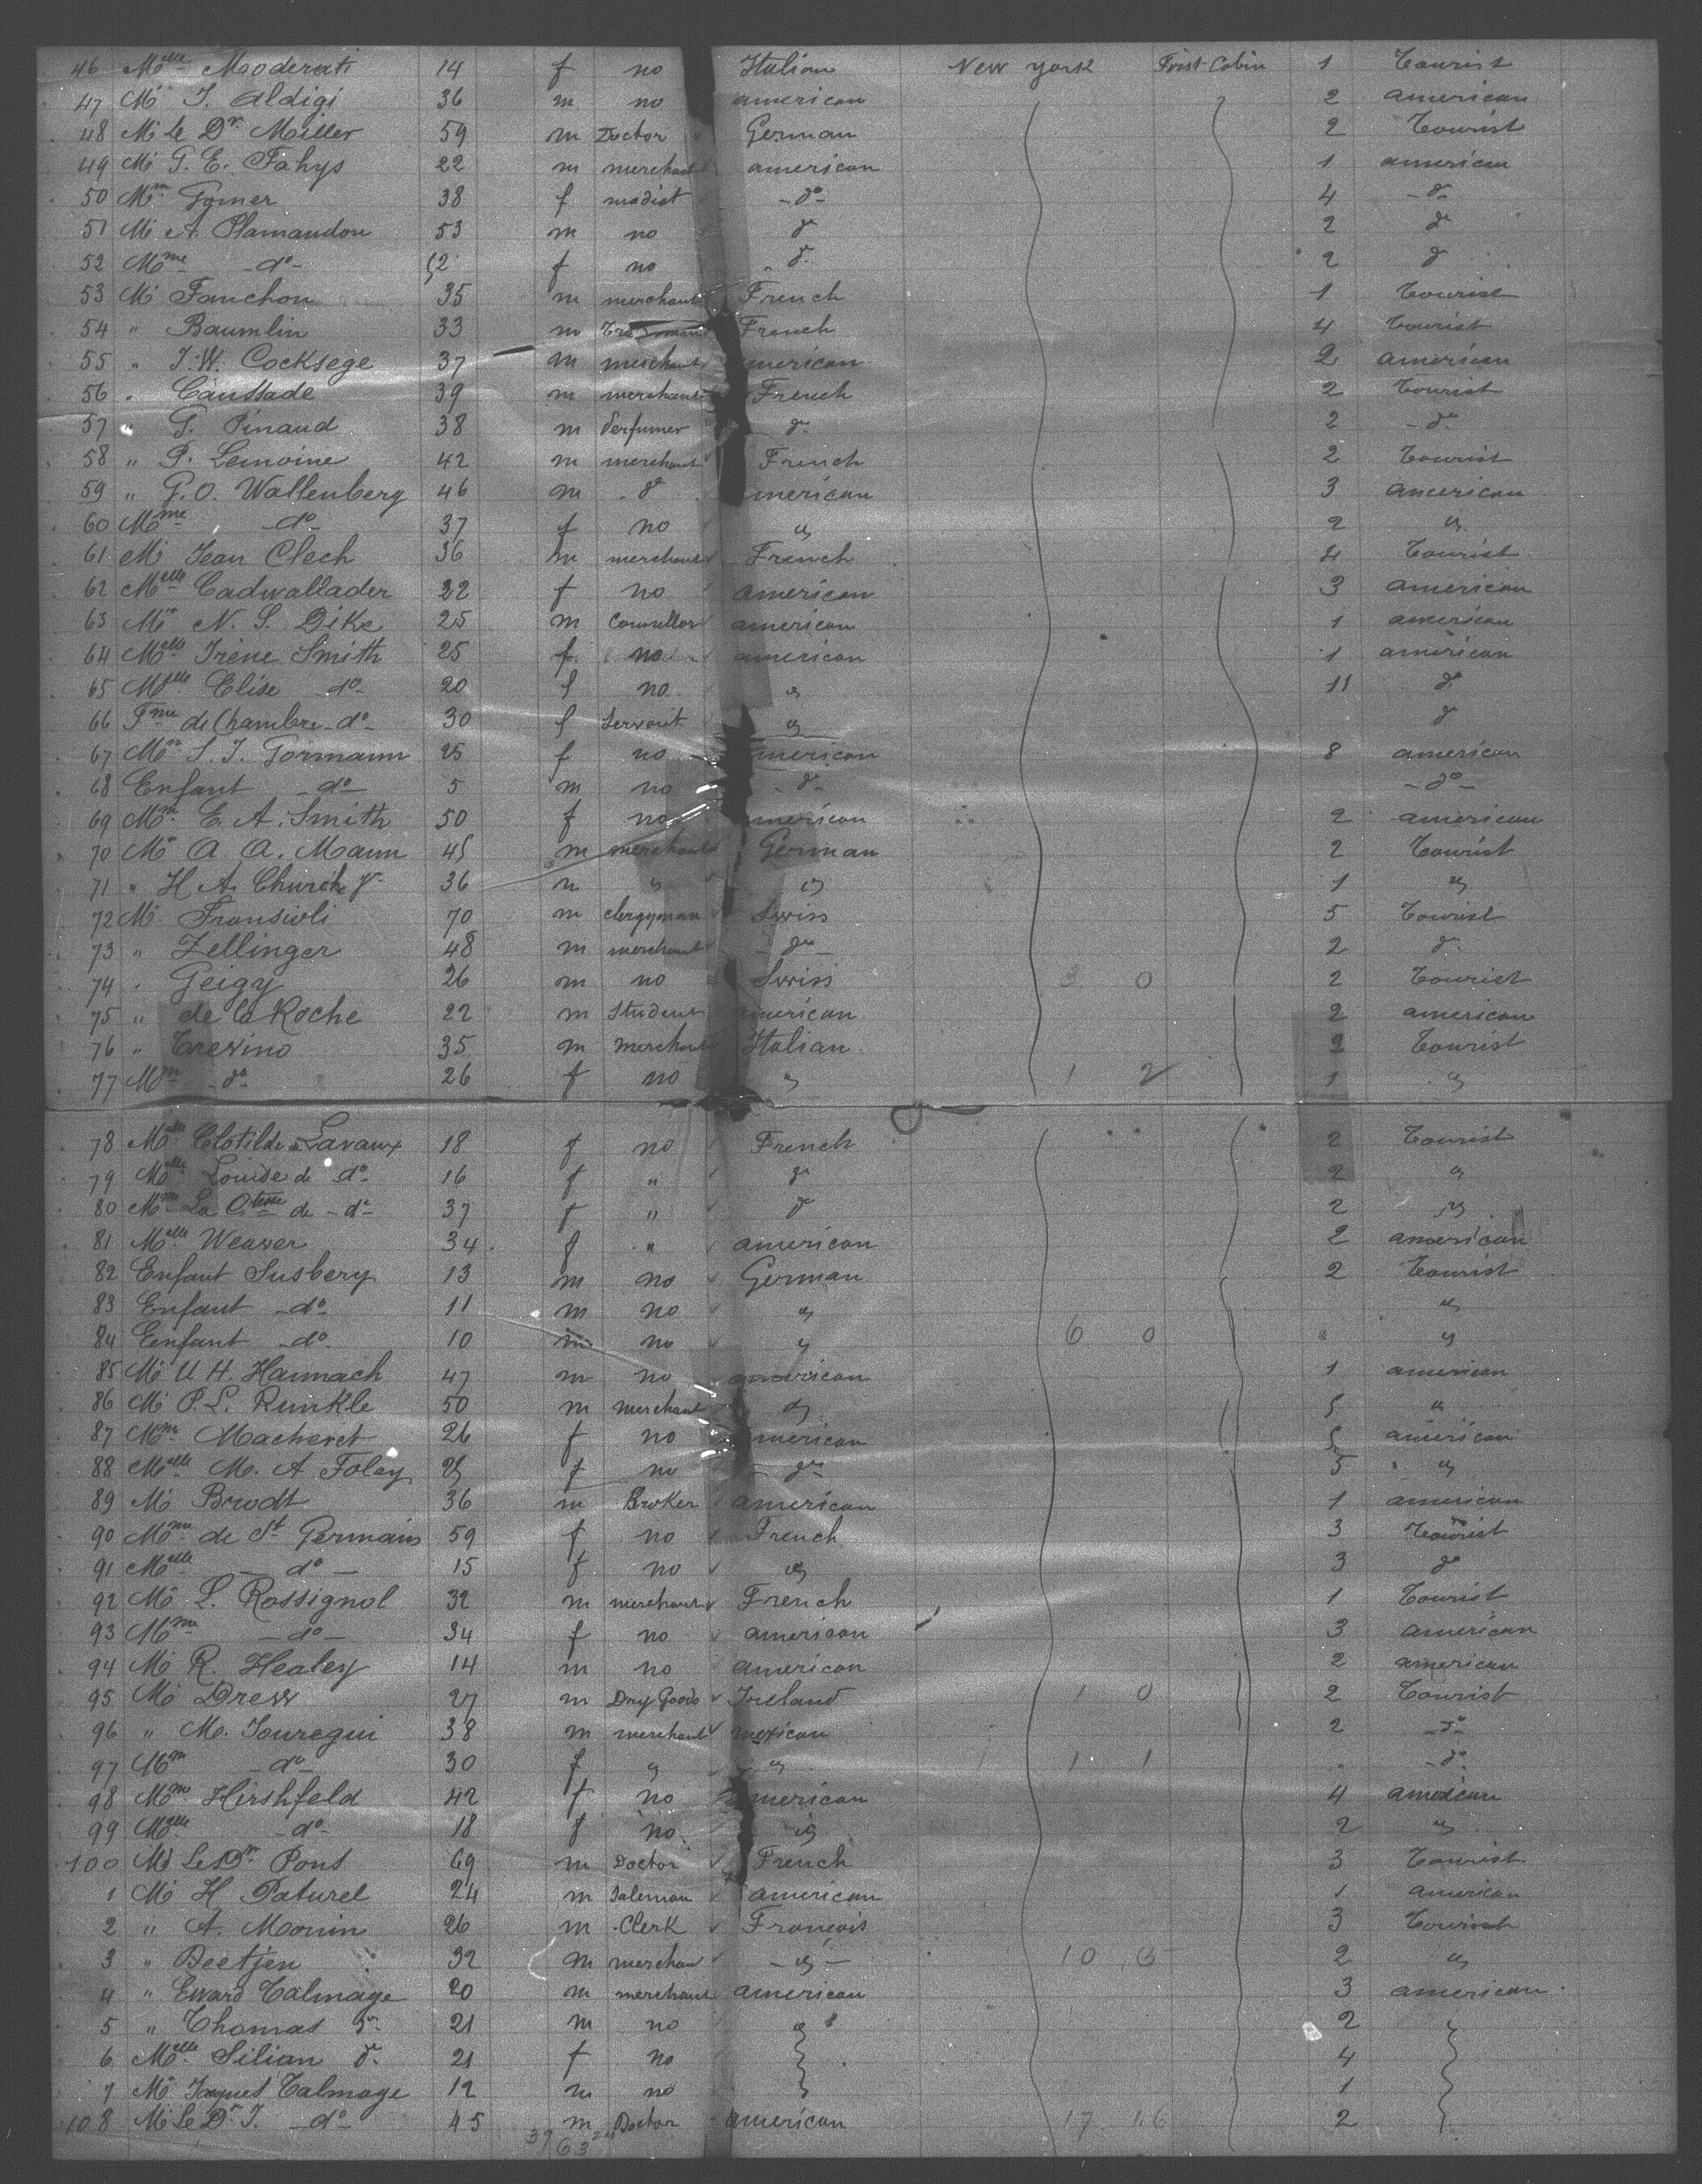 46 Melle Moderati 14 f no Italian New York First Cabin 1 Tourist
47 Mr J. Aldigi 36 m no american 2 american
48 Mr Le Dr Meiller 59 m Doctor German 2 Tourist
49 Mr G. E. Fahys 22 m merchant american 1 american
50 Mme 38 f modist -do- 4 -do-
51 Mr A. Plamandon 53 m no do 2 do
52 Mme -do- 52 f no do 2 do
53 Mr Fanchon 35 m merchant French 1 Tourist
54 " Baumlin 33 m French 4 Tourist
55 " J. W. Cocksege 37 m merchant merican 2 american
56 " Caussade 39 m merchant French 2 Tourist
57 " G. Pinaud 38 m Perfumer do 2 -do-
58 " P. Lemoine 42 m merchant French 2 Tourist
59 " G. O. Wallenberg 46 m do merican 3 american
60 Mme -do- 37 f no " 2 "
61 Mr Jean Clech 36 m merchant French 4 Tourist
62 Melle Cadwallader 22 f no american 3 american
63 Mr N. S. Dike 25 m Counsellor american 1 american
64 Melle Irène Smith 25 f no american 1 american
65 Melle Elise do 20 f no " 11 do
66 Fme de Chambre do 30 f Servant " do
67 Mme S. J. Gormann 25 f no merican 8 american
68 Enfant do 5 m no do -do-
69 Mme E. A. Smith 50 f no merican 2 american
70 Mr A. A. Mann 45 m merchant German 2 Tourist
71 " H. A. Church Jr 36 m " " 1 "
72 Mr Fransioli 70 m clergyman Swiss 5 Tourist
73 " Zellinger 48 m merchant -do- 2 do
74 " Geigy 26 m no Swiss 3 0 2 Tourist
75 " de la Roche 22 m Student american 2 american
76 " Trevino 35 m Merchant Italian 2 Tourist
77 Mme do 26 f no " 1 2 1 "
78 Melle Clotilde Lavaux 18 f no French 2 Tourist
79 Melle Louise de do 16 f " do 2 "
80 Mme La Ctesse de do 37 f " do 2 "
81 Melle Weaver 34 f " american 2 american
82 Enfant Susbery 13 m no German 2 Tourist
83 Enfant do 11 m no " "
84 Enfant do 10 m no " 6 0 "
85 Mr U. H. Hannach 47 m no american 1 american
86 Mr P. L. Runkle 50 m merchant " 5 "
87 Mme Macheret 26 f no merican 5 american
88 Melle M. A. Foley 25 f no do 5 "
89 Mr Brodt 36 m Broker american 1 american
90 Mme de St Germain 59 f no French 3 Tourist
91 Melle do 15 f no " 3 do
92 Mr L. Rossignol 32 m merchant French 1 Tourist
93 Mme do 34 f no american 3 american
94 Mr R. Healey 14 m no american 2 american
95 Mr Drew 27 m Dry Goods Ireland 1 0 2 Tourist
96 " M. Touregui 38 m merchant mexican 2 -do-
97 Mme do 30 f " " 1 1 -do-
98 Mme Hirshfeld 42 f no american 4 american
99 Melle do 18 f no " 2 "
100 Mr Le Dr Pons 69 m Doctor French 3 Tourist
1 Mr H Paturel 24 m Saleman american 1 american
2 " A. Monin 26 m Clerk Francois 3 Tourist
3 " Beetjen 32 m merchan - " - 10 2 "
4 " Eward Talmage 20 m merchant american 3 american
5 " Thomas do 21 m no " 2
6 Melle Silian do 21 f no 4
7 Mr Talmage 12 m no 1
108 Mr Le Dr T. do 45 m Doctor american 17 16 2
39 63 24